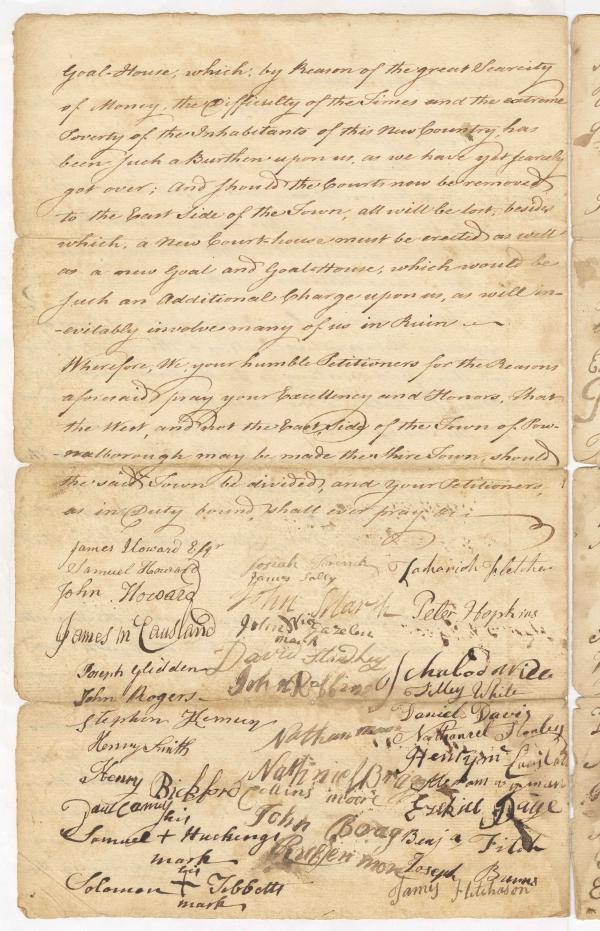 Goal-House, which, by Reason of the great Scarcity
of Money, the Difficulty of the Times and the extreme
Poverty of the Inhabitants of this New Country, has
been such a Burthen upon us, as we have yet scarcely
got over; And should the Courts now be removed
to the East Side of the Town, all will be lost, besides
which, a New Court-house must be erected as well
as a new Goal and Goal-House, which would be
such an Additional Charge upon us, as will in-
-evitably involve many of us in Ruin
Wherefore, We, your humble Petitioners for the Reasons
aforesaid pray your Excellency and Honors, that
the West, and not the East Side of the Town of Pow-
-nalborough may be made the Shire Town, should
the said Town be divided, and your Petitioners,
as in Duty bound, shall ever pray &c.
James Howard Esqr
Samuel Howard
John Howard
James McCausland
Joseph Glidden
John Rogers
Stephen
Henry Smith
Henry Bickford
his
Samuel + Huchings
mark
his
Solomon + Tibbetts
mark
Josiah
James
John
John
mark
David
John Robbins
Nathan moore
Nathniel Bragg
Collins moore
John Brag
moore
Zachariah Fletcher
Peter Hopkins
Davis
Tilley White
Daniel Davis
Nathaniel
Henry
Ezekiel Page
Benja Fitch
Joseph Burns
James